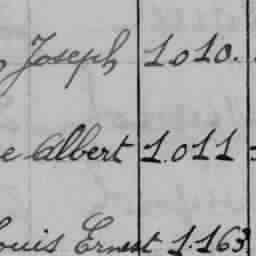 Joseph 1.010.
e Albert 1.011
ouis Ernest 1.163